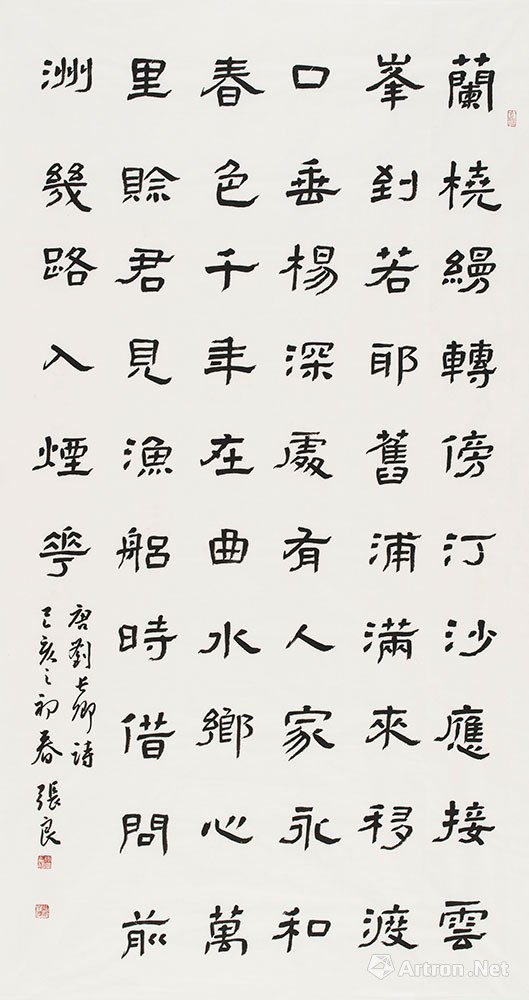 蘭橈縵轉傍汀沙應接雲
峯到若耶舊浦滿來移渡
口垂楊深處有人家永和
春色千年在曲水鄉心萬
里賒君見漁船時借問前
洲幾路入煙華
唐劉長卿詩
己亥之初春 張良
Artron.Net